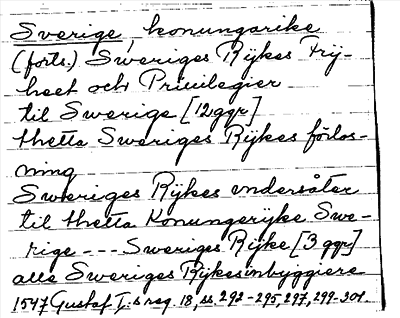 Sverige, konungarike
(forts.) Sweriges Rijkes Frij-
heet och Privilegier
til Swerige [12 ggr]
thetta Sweriges Rijkes förlos-
ning
Sweriges Rijkes vndersåter
til thetta Konungerijke Swe-
rige --- Sweriges Rijke [3 ggr]
alle Sweriges Rijkes inbyggiere
1547 Gustaf I:s reg. 18, ss. 292-295, 297, 299-301.